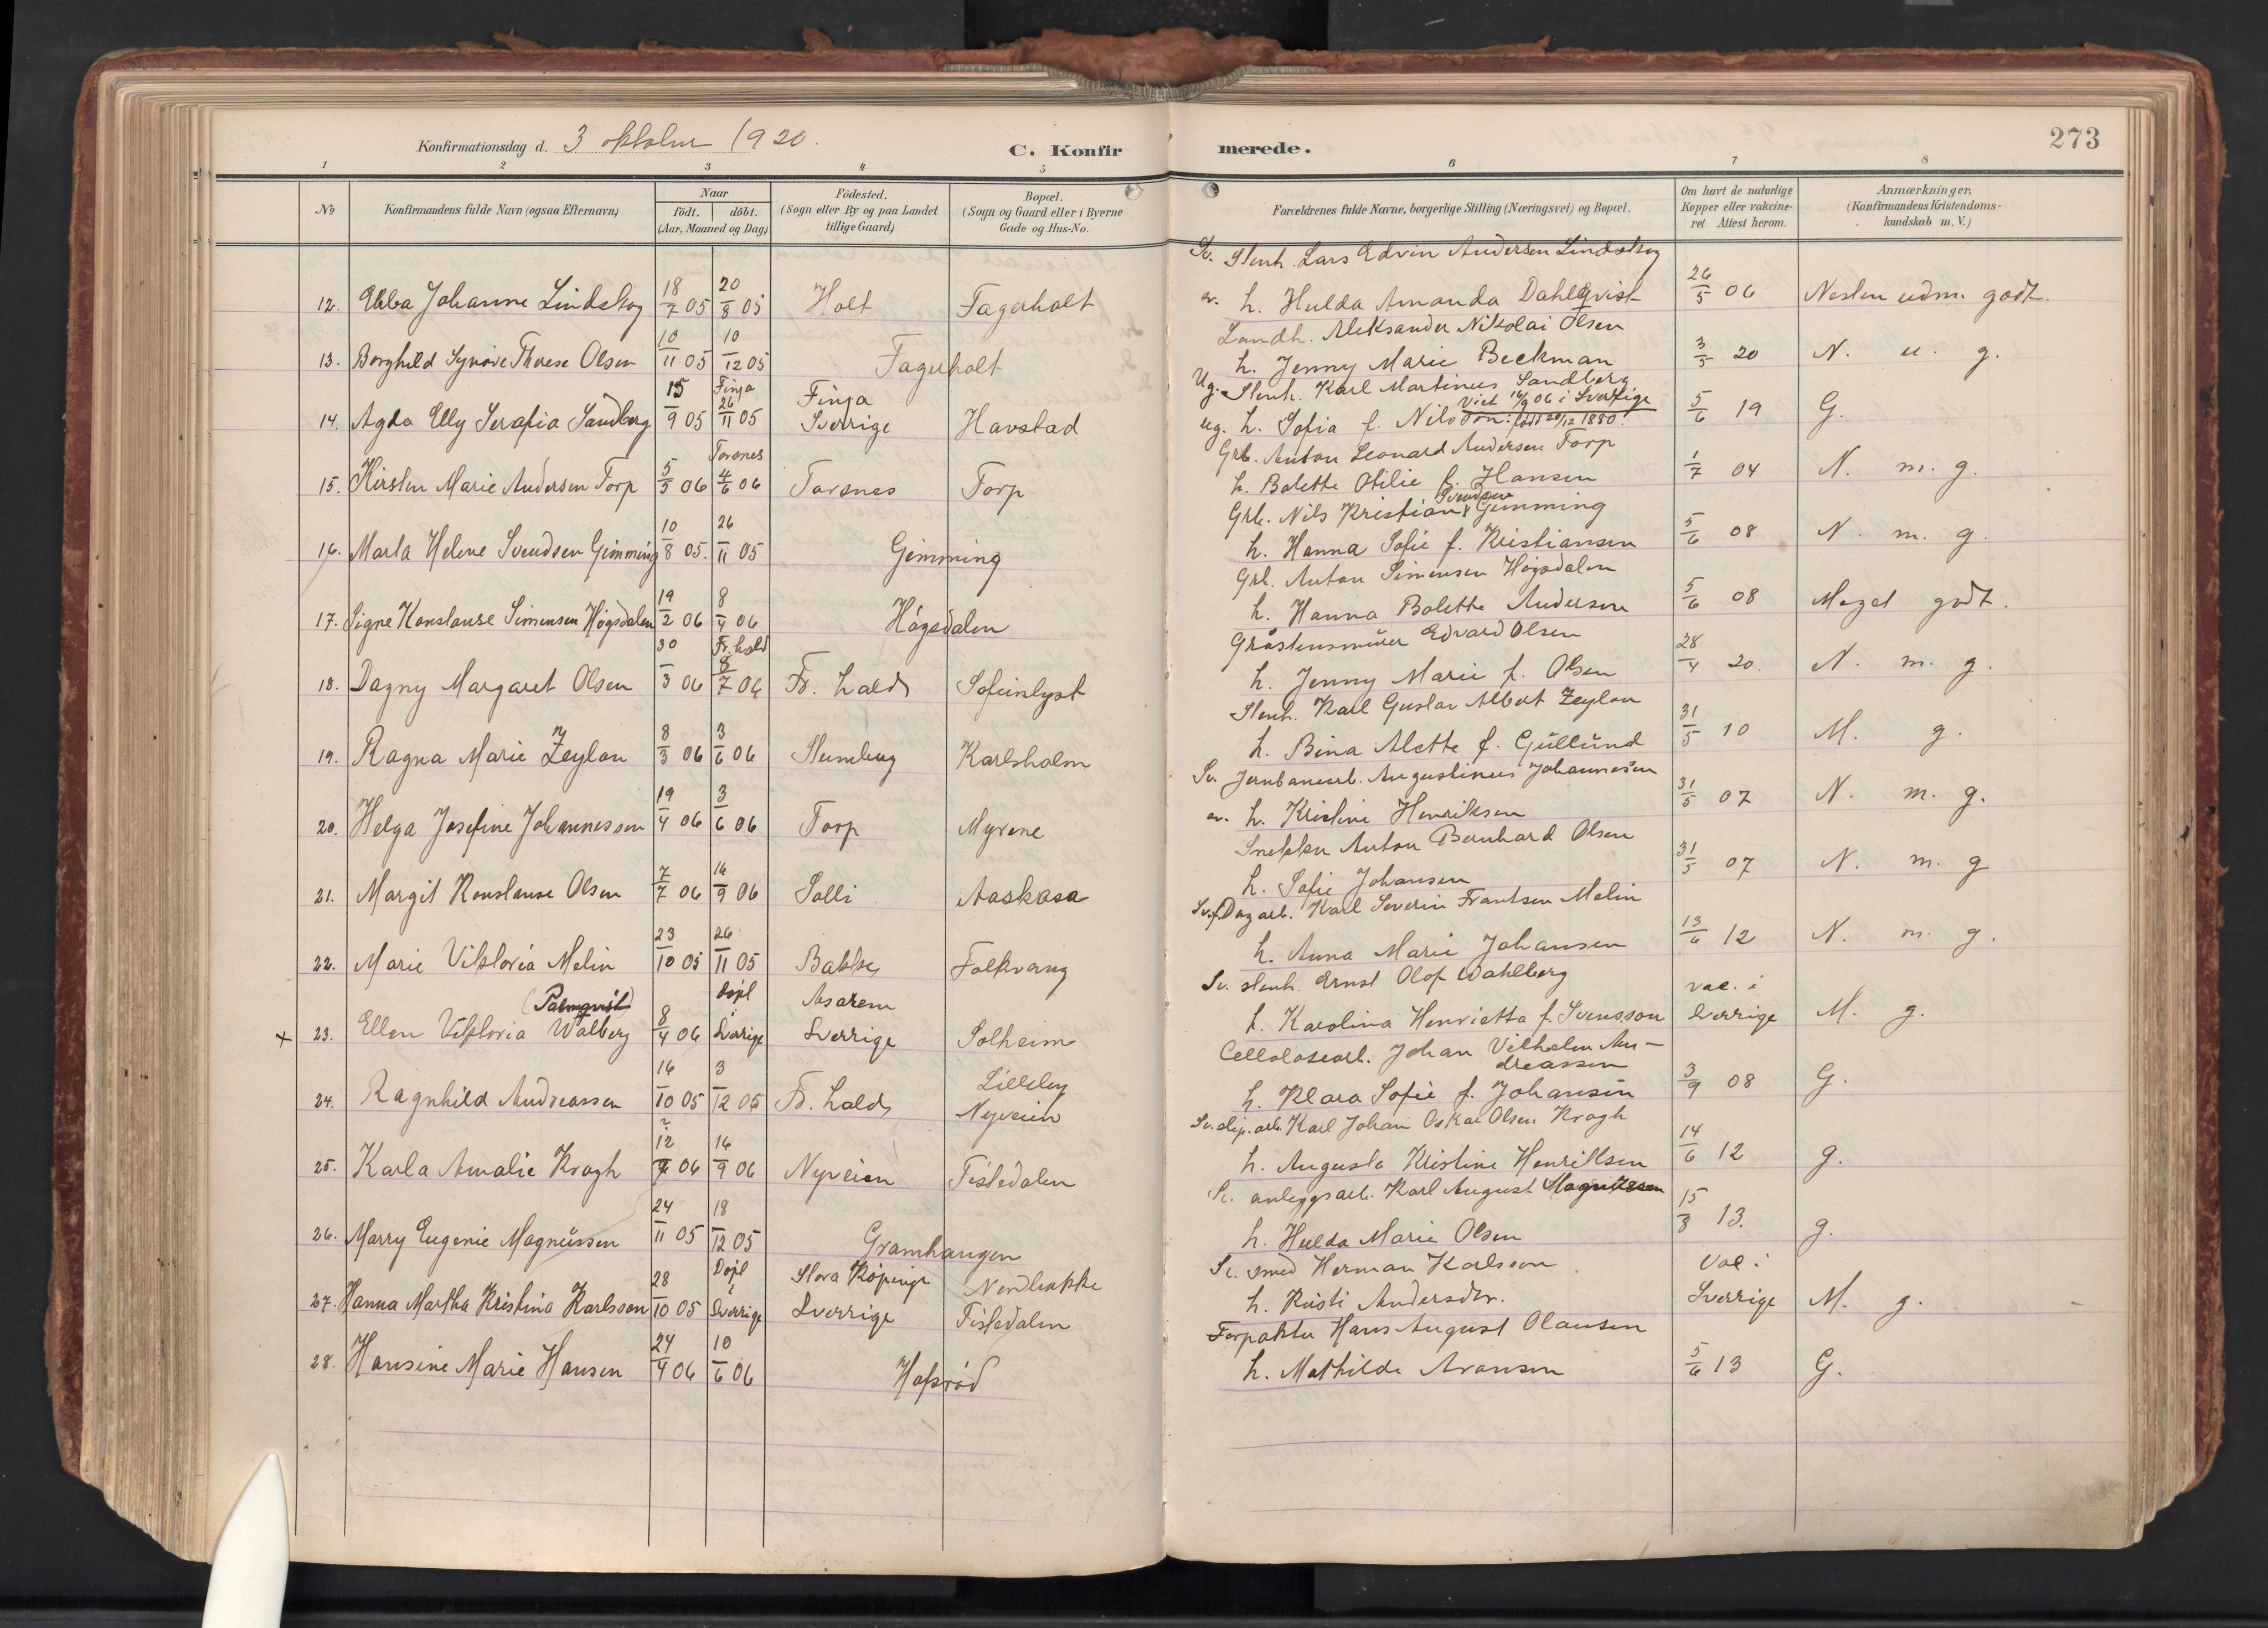 Konfirmationsdag d. 3 oktober 1920.
C. Konfirmerede.
273
1 2 3 4 5 6 7 8
No
Konfirmandens fulde Navn (ogsaa Efternavn)
Naar
födt. döbt.
(Aar, Maaned og Dag)
Födested.
(Sogn eller By og paa Landet
tillige Gaard)
Bopæl.
(Sogn og Gaard eller i Byerne
Gade og Hus-No.
Forældrenes fulde Navne, borgerlige Stilling (Næringsvei) og Bopæl.
Om havt de naturlige
Kopper eller vakcine-
ret. Attest herom.
Anmærkninger.
(Konfirmandens Kristendoms-
kundskab m. V.)
Sv. Stenh. Lars Edvin Andersen Lindskog
12. Ebba Johanne Lindskog 18/7 05 20/8 05 Holt Fagerholt h. Hulda Amanda Dahlqvist 26/5 06 Nesten udm. godt.
Landh. Aleksander Nikolai Olsen
13. Borghild Synöve Therese Olsen 10/11 05 10/12 05 Fagerholt h. Jenny Marie Beckman 3/5 20 N. u. g.
Ug. Stenh. Karl Martinius Sandberg
Viet 16/9 06 i Sverige
14. Agda Elly Serafia Sandberg 15/9 05 Finja 26/11 05 Finja Sverrige Havstad ug. h. Sofia f. Nilsson: född 20/12 1880. 5/6 19 G.
Grb. Anton Leonard Andersen Torp
15. Kirsten Marie Andersen Torp 5/5 06 Torsnes 4/6 06 Torsnes Torp h. Bolette Otilie f. Hansen 1/7 04 N. m. g.
Grb. Nils Kristian Svendsen Gimming
16. Marta Helene Svendsen Gimming 10/8 05. 26/11 05 Gimming h. Hanna Sofie f. Kristiansen 5/6 08 N. m. g.
Grb. Anton Simensen Högsdalen
17. Signe Konstanse Simensen Högsdalen 19/2 06 8/4 06 Högsdalen h. Hanna Bolette Andersen 5/6 08 Meget godt.
Gråstensmurer Edvard Olsen
18. Dagny Margaret Olsen 30/3 06 Fr.hald 8/7 06 Fr. hald Sofienlyst h. Jenny Marie f. Olsen 28/4 20. N. m. g.
Stenh. Karl Gustav Albert Zeylon
19. Ragna Marie Zeylon 8/3 06 3/6 06 Stumberg Karlsholm h. Bina Alette f. Gullund 31/5 10 M. g.
Sv. Jernbanearb. Augustinus Johannesen
20. Helga Josefine Johannesson 19/4 06 3/6 06 Torp Myrene h. Kristine Henriksen 31/5 07 N. m. g.
Snekker Anton Bernhard Olsen
21. Margit Konstanse Olsen 7/7 06 16/9 06 Solli Aaskasa h. Sofie Johansen 31/5 07 N. m. g
Sv. f. Dagarb. Karl Severin Frantsen Melin
22. Marie Viktoria Melin 23/10 05 26/11 05 Bakke Folkvang h. Anna Marie Johansen 13/6 12 N. m. g.
Sv. stenh. Ernst Olof Wahlberg
(Palmqvist)
x 23. Ellen Viktoria Walberg 8/4 06 Döpt i Sverrige Asarum Sverrige Solheim h. Karolina Henrietta f. Svensson vac. i Sverrige M. g.
Cellolosearb. Johan Vilhelm An-
dreassen
24. Ragnhild Andreassen 16/10 05 3/12 05 Fr. hald Lilleby Nyveien h. Klara Sofie f. Johansen 3/9 08 G.
Sv. slip. arb. Karl Johan Oskar Olsen Krogh
25. Karla Amalie Krogh 12/7 06 16/9 06 Nyveien Tistedalen h. Augusta Kristine Henriksen 14/6 12 g.
Sv. anleggsarb. Karl August Magnussen
26. Marry Eugenie Magnussen 24/11 05 18/12 05 Gramhaugen h. Hulda Marie Olsen 15/8 13. g.
Sv. smed Herman Karlsson
27. Hanna Martha Kristina Karlsson 28/10 05 Döpt i Sverrige Stora Köpinge Sverrige Nordløkke Tistedalen h. Kristi Andersdtr. Vac. i Sverrige M. g.
Forpakter Hans August Olausen
28. Hansine Marie Hansen 24/4 06 10/6 06 Hafsröd h. Mathilde Aronsen 5/6 13 G.